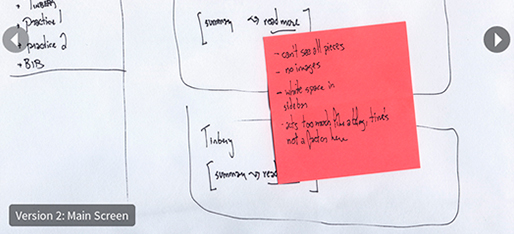 practice 1
practice 2
BIB
[summary ~> read more
- can't see all pieces
- no images
- white space in
sidebar
- acts too much like a blog, time's
not a factor here
Tinbury
[summary ~> read
Version 2: Main Screen